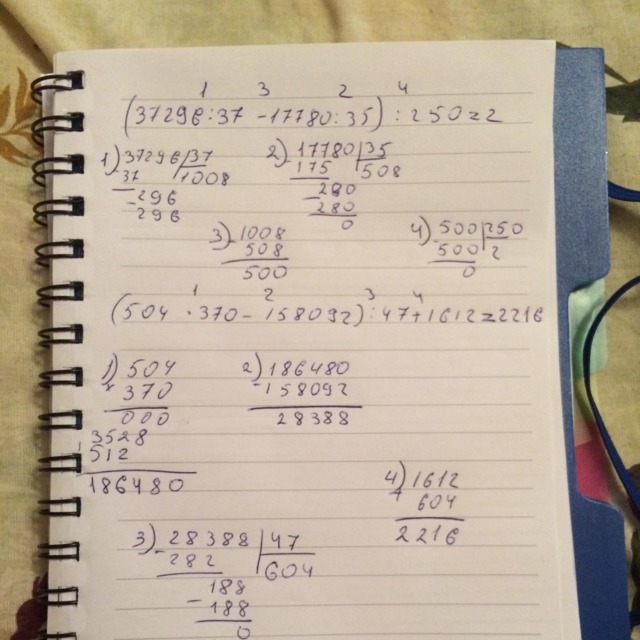 1 3 2 4
(37296:37 -17780:35) :250=2
1) 37296 37
37 1008
-296
296
2) -17780 35
175 508
280
-280
0
3) -1008
508
500
4) -500 250
500 2
0
1 2 3 4
(504 · 370 - 158092) : 47 + 1612 = 2216
1) 504
× 370
000
3528
512
186480
2) 186480
-158092
28388
4) 1612
+ 604
2216
3) -28388 47
282 604
188
-188
0